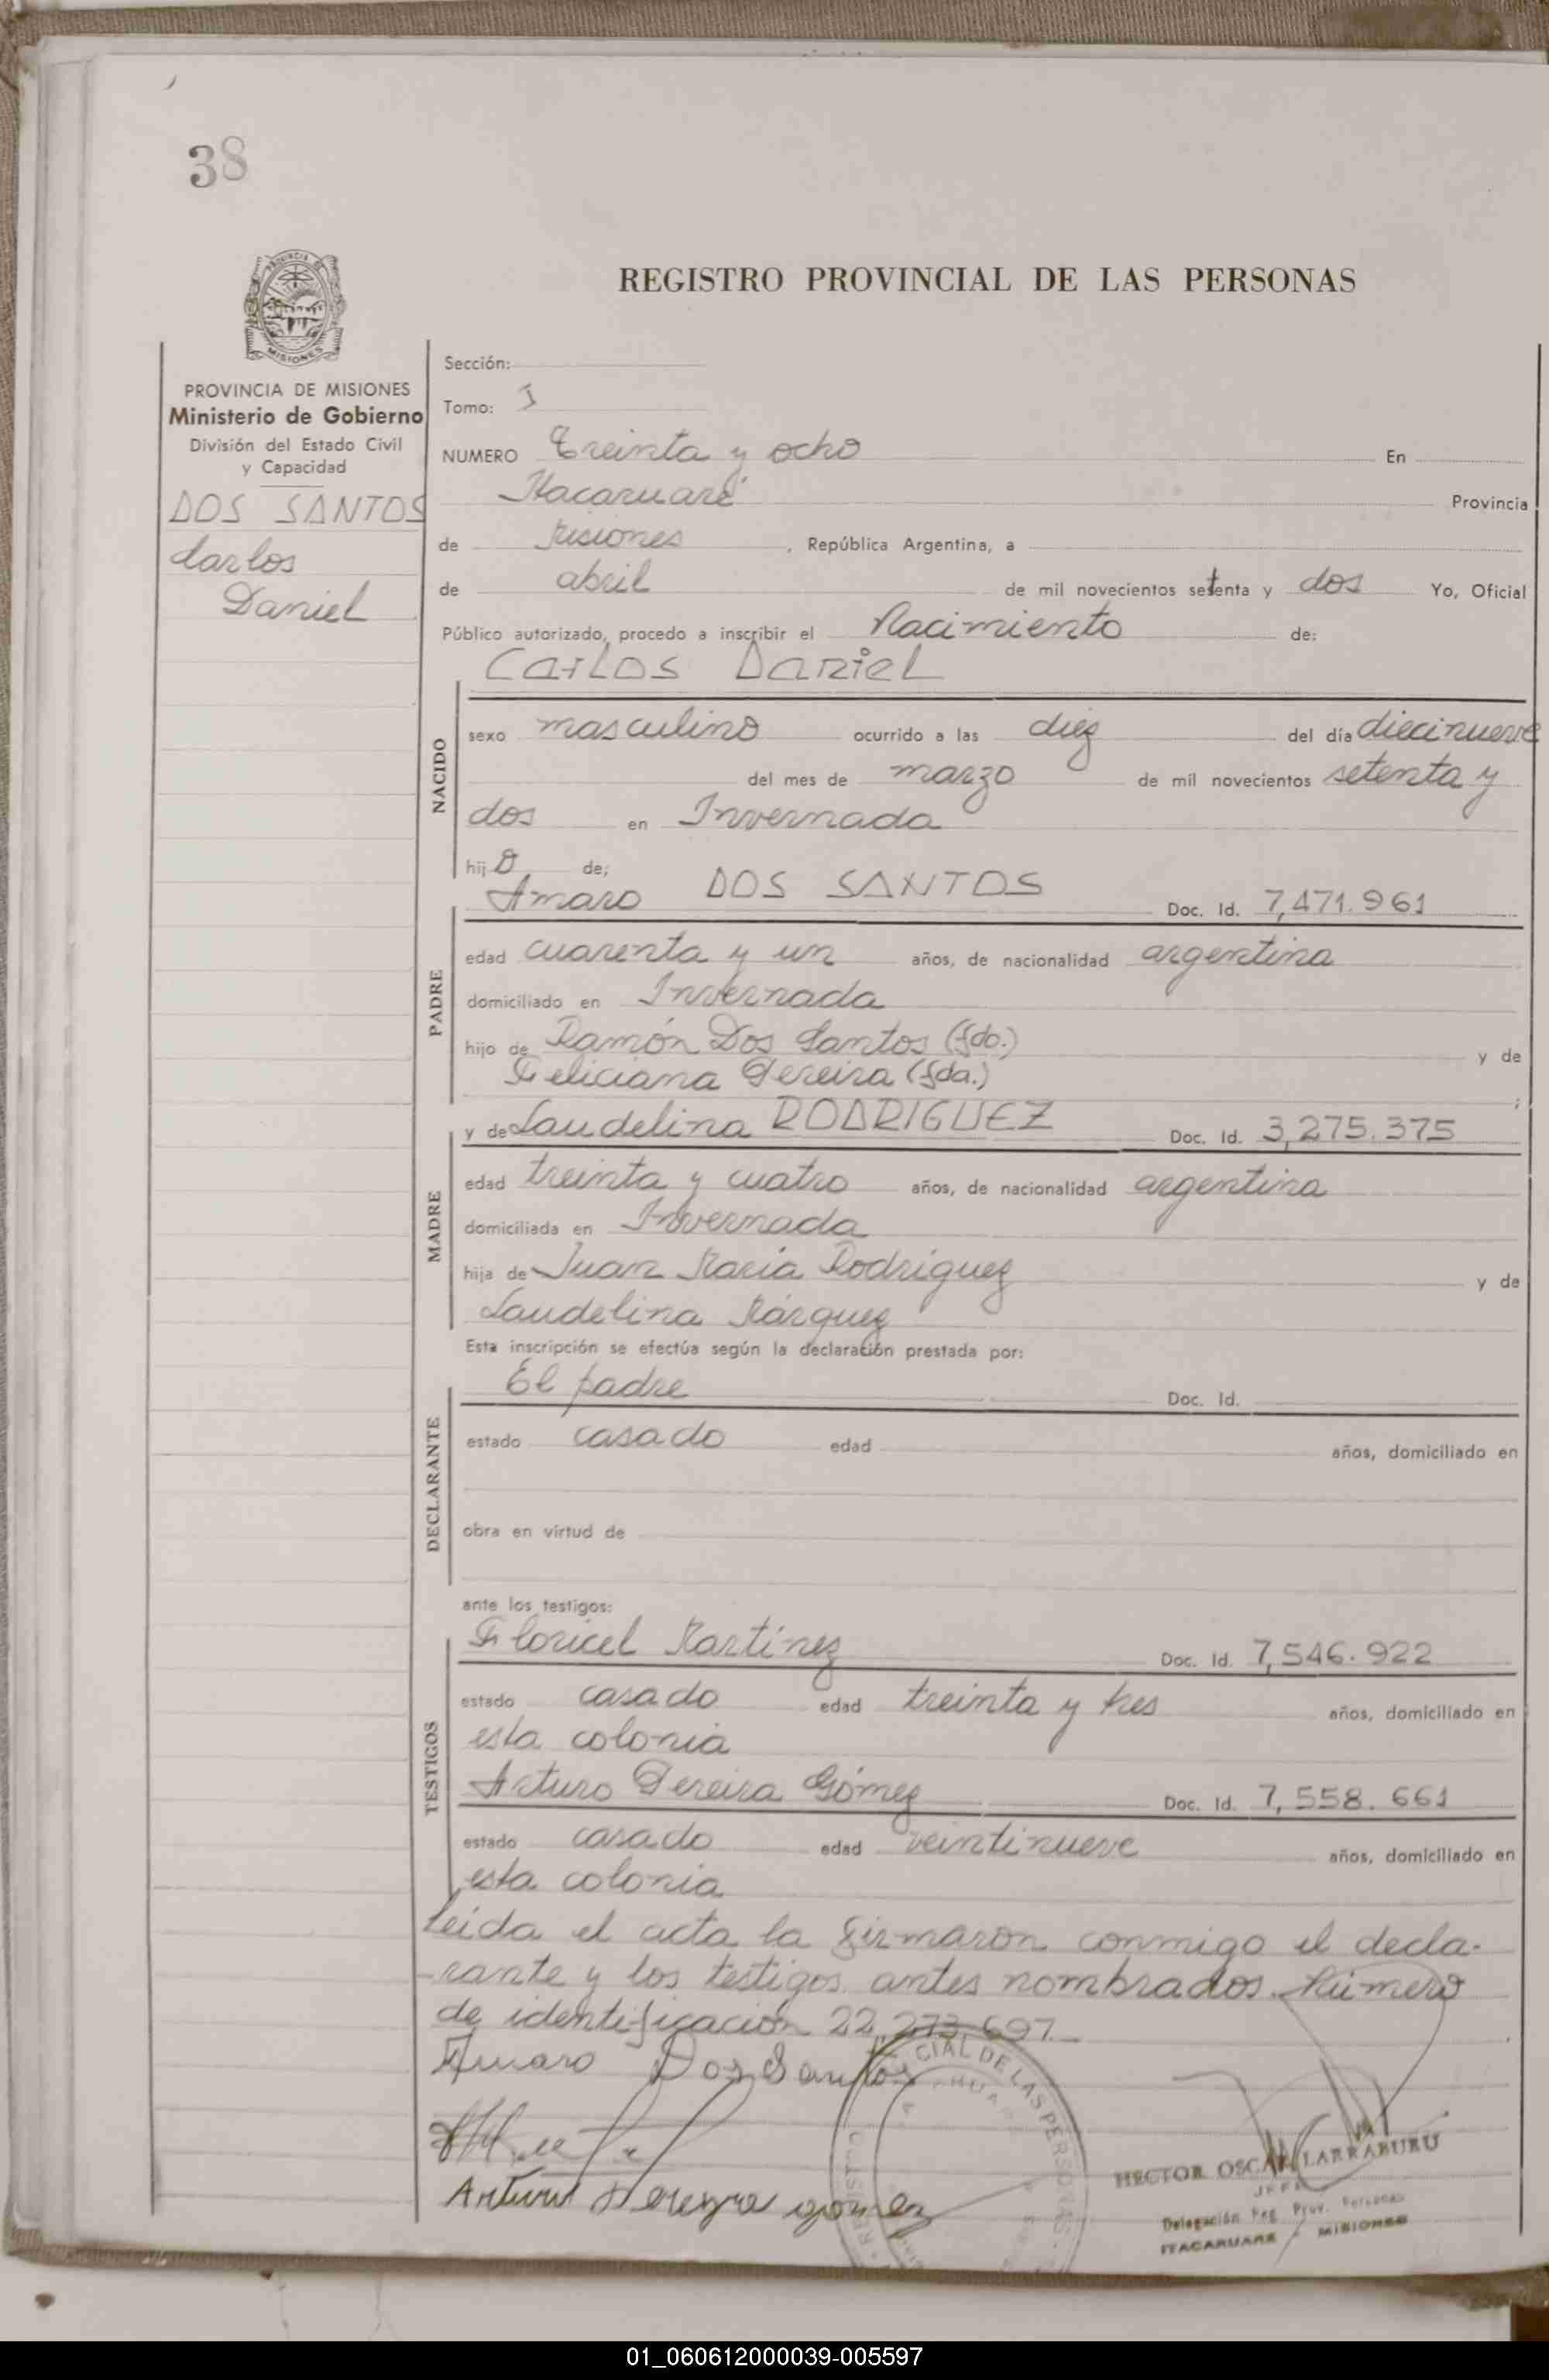 38
REGISTRO PROVINCIAL DE LAS PERSONAS
PROVINCIA DE MISIONES
Ministerio de Gobierno
División del Estado Civil
y Capacidad
DOS SANTOS
Carlos
Daniel
Sección:
Tomo: I
NUMERO Treinta y ocho En
Itacaruaré Provincia
de Misiones , República Argentina, a
de abril de mil novecientos setenta y dos Yo, Oficial
Público autorizado, procedo a inscribir el Nacimiento de:
Carlos Daniel
NACIDO
sexo masculino ocurrido a las diez del día diecinueve
del mes de marzo de mil novecientos setenta y
dos en Invernada
hijo de;
Amaro DOS SANTOS Doc. Id. 7,471.961
PADRE
edad cuarenta y un años, de nacionalidad argentina
domiciliado en Invernada
hijo de Ramón Dos Santos (fdo.) y de
Feliciana Pereira (fda.) ;
y de Laudelina RODRIGUEZ Doc. Id. 3,275.375
MADRE
edad treinta y cuatro años, de nacionalidad argentina
domiciliada en Invernada
hija de Juan María Rodríguez y de
Laudelina Márquez
Esta inscripción se efectúa según la declaración prestada por:
El padre Doc. Id.
DECLARANTE
estado casado edad años, domiciliado en
obra en virtud de
ante los testigos:
Floricel Martínez Doc. Id. 7,546.922
TESTIGOS
estado casado edad treinta y tres años, domiciliado en
esta colonia
Arturo Pereira Gómez Doc. Id. 7,558.661
estado casado edad veintinueve años, domiciliado en
esta colonia
Leída el acta la firmaron conmigo el decla-
-rante y los testigos antes nombrados. Número
de identificación 22.273.697.-
Amaro Dos Santos
Arturo Pereyra gomez
CIAL DE LAS PERSONAS
HECTOR OSCAR LARRABURU
JEFE
Delegación Reg. Prov. Personas
ITACARUARE - MISIONES
01_060612000039-005597